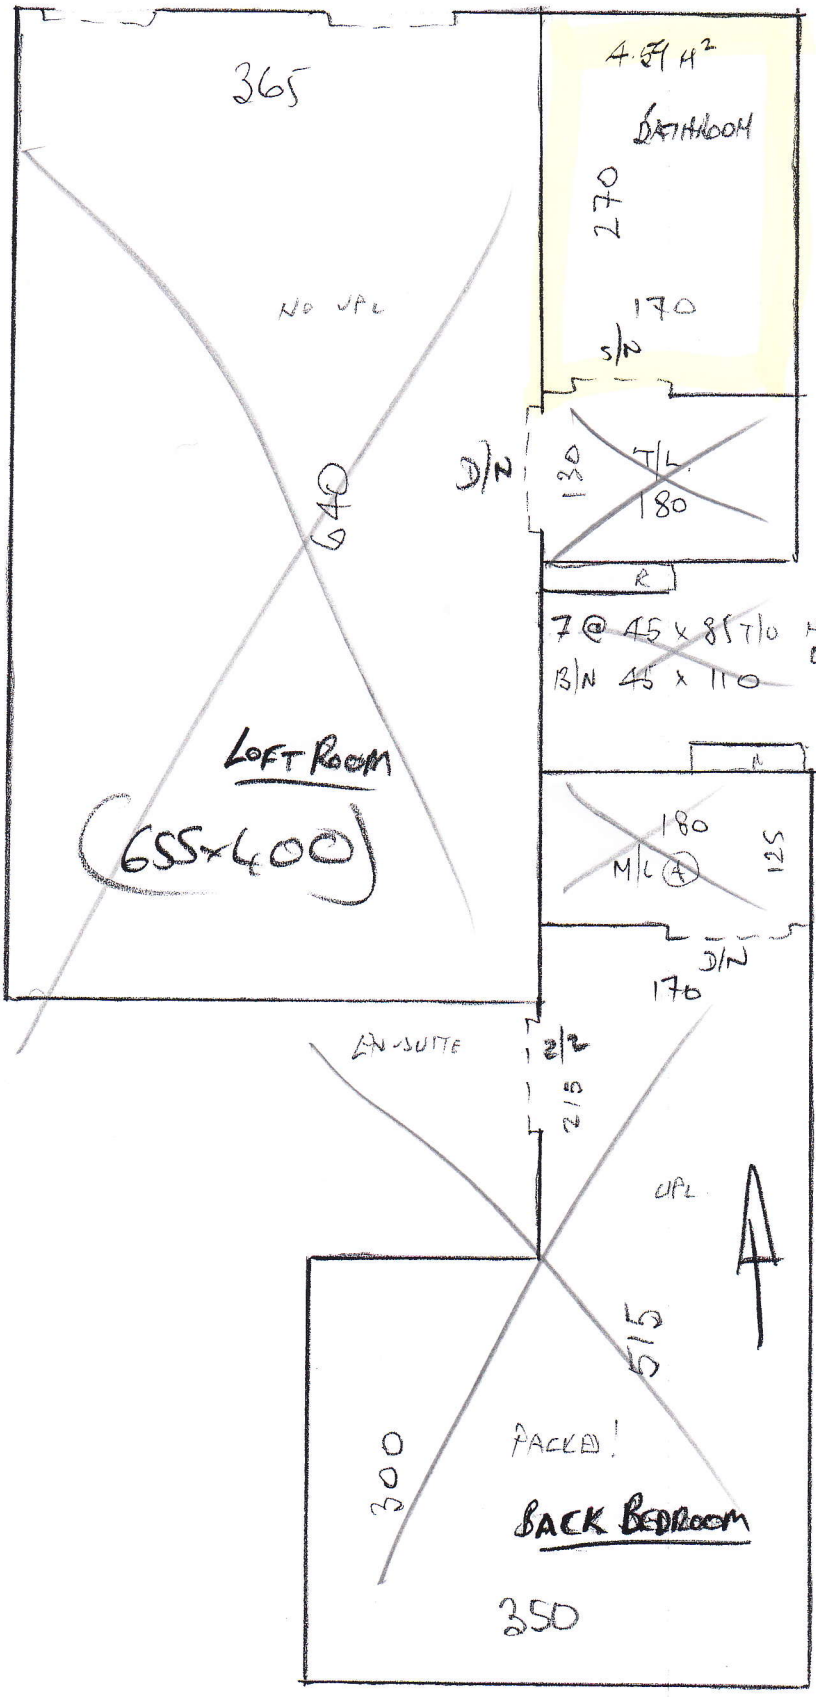 365
4.59 M²
BATHROOM
270
170
S/N
NO UPL
D/N
130
T/L
180
640
R
7 @ 45 x 85 T/O
B/N 45 x 110
LOFT ROOM
(655x400)
180
125
M/L (A)
D/N
170
EN-SUITE
2/2
215
UPL
515
300
PACKED!
BACK BEDROOM
350